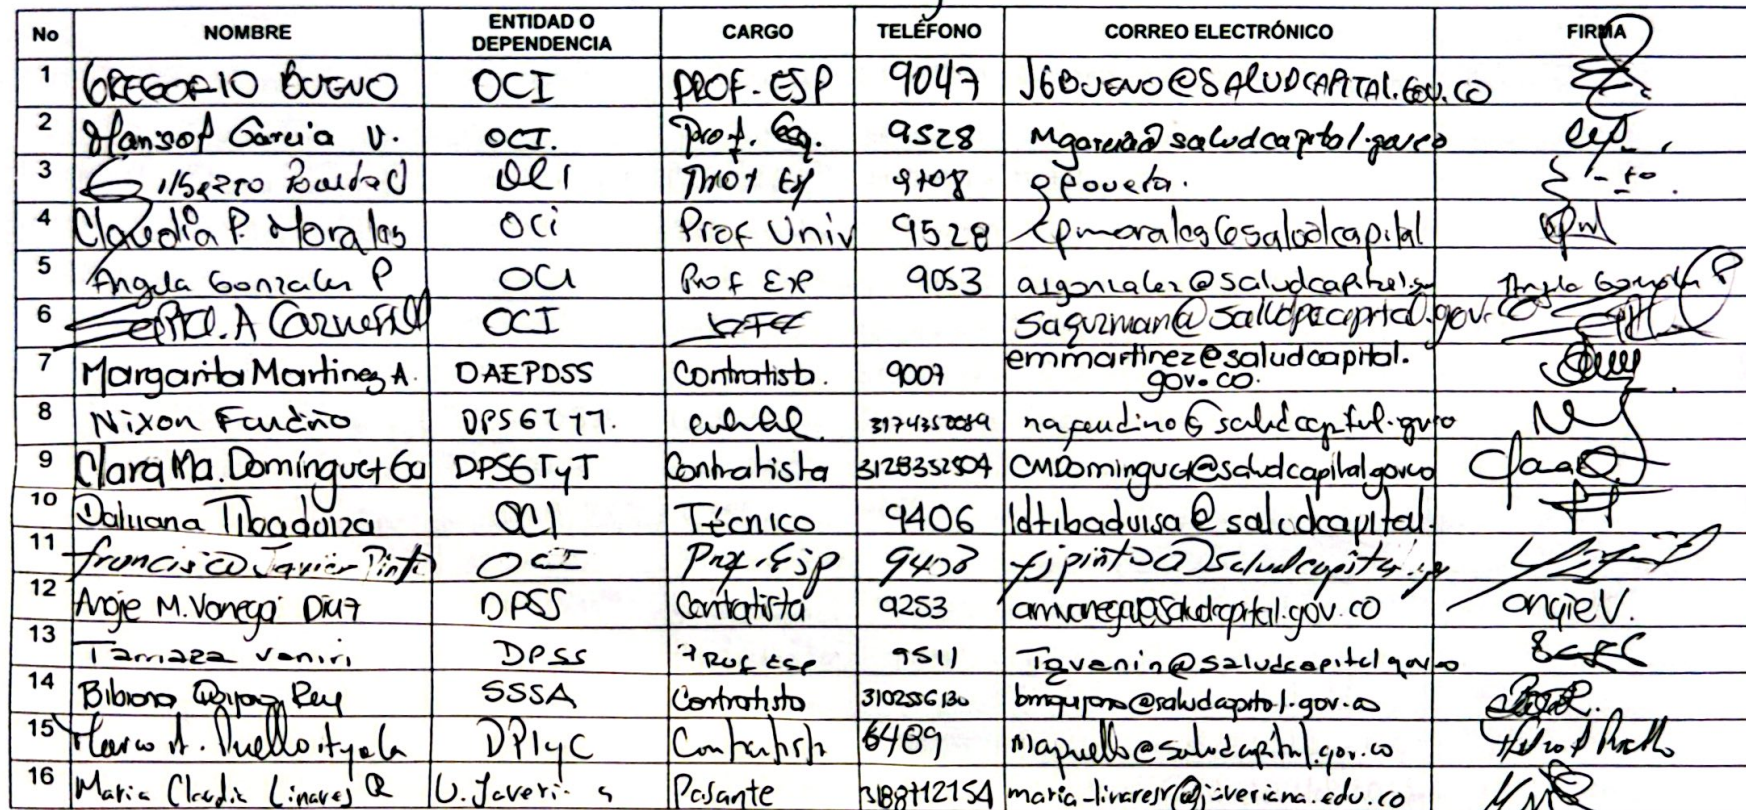 No NOMBRE ENTIDAD O DEPENDENCIA CARGO TELÉFONO CORREO ELECTRÓNICO FIRMA
1 GREGORIO BUENO OCI PROF. ESP 9047 JGBUENO@SALUDCAPITAL.GOV.CO
2 Marisol Garcia V. OCI. Prof. Esp. 9528 Mgarcia@saludcapital.gov.co
3 Gilberto OCI Prof Esp 9708
4 Claudia P. Morales OCi Prof Univ 9528 cpmorales@saludcapital
5 Angela Gonzalez P OCI Prof Esp 9053 a1gonzalez@saludcapital. Angela González P
6 OCI saguzman@saludcapital.gov.co
7 Margarita Martinez A. DAEPDSS Contratist. 9007 emmartinez@saludcapital.gov.co.
8 Nixon Fandiño DPSGTYT. nafandino@saludcapital.gov.co
9 Clara Ma. Domínguez Ga DPSGTyT Contratista 3128352504 CMDominguez@saludcapital.gov.co
10 Daluana Tibaduiza OCI Técnico 9406 ldtibaduisa@saludcapital.
11 Francisco Javier Pinto OCI Prof. Esp fjpinto@saludcapital.
12 Angie M. Vanega Diaz DPSS Contratista 9253 amvanega@saludcapital.gov.co angie V.
13 Tamara Vanin DPSS Prof esp 9511 Tavanin@saludcapital.gov.co
14 Bibiana Quijano Rey SSSA Contratista 3102556130 bmquijano@saludcapital.gov.co
15 Marco A. Puello Ayala DPIyC Contratista 6489 mapuello@saludcapital.gov.co
16 Maria Claudia Linares Q U. Javeriana Pasante 3188712154 maria-linaresr@javeriana.edu.co